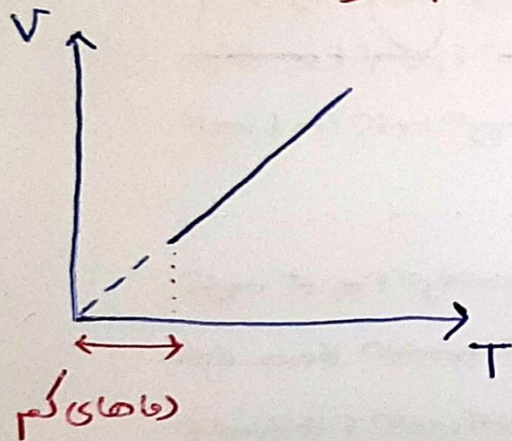 V
T
دماهای کم